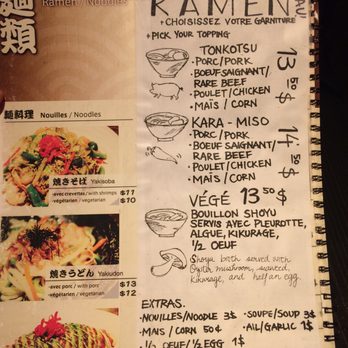 麺類
Ramen / Noodles
麺料理 Nouilles / Noodles
焼きそば Yakisoba
• avec crevettes / with shrimps $11
• végétarien / vegetarian $10
焼きうどん Yakiudon
• avec porc / with porc $13
• végétarien / vegetarian $12
RAMEN
• CHOISISSEZ VOTRE GARNITURE
• PICK YOUR TOPPING
TONKOTSU 13 50 $
• PORC/PORK
• BOEUF SAIGNANT/
RARE BEEF
• POULET/CHICKEN
• MAÏS / CORN
KARA - MISO 14 50 $
• PORC/PORK
• BOEUF SAIGNANT/
RARE BEEF
• POULET/CHICKEN
• MAÏS / CORN
VÉGÉ 13 50 $
BOUILLON SHOYU
SERVIS AVEC PLEUROTTE,
ALGUE, KIKURAGE,
1/2 OEUF
Shoyu broth served with
Oyster mushroom, seaweed,
Kikurage, and half an egg.
EXTRAS.
• NOUILLES/NOODLE 3$ • SOUPE/SOUP 3$
• MAIS / CORN 50¢ • AIL/GARLIC 1$
• 1/2 OEUF/ 1/2 EGG 1$